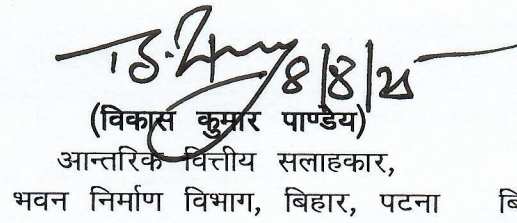 8/8/25
(विकास कुमार पाण्डेय)
आन्तरिक वित्तीय सलाहकार,
भवन निर्माण विभाग, बिहार, पटना बि